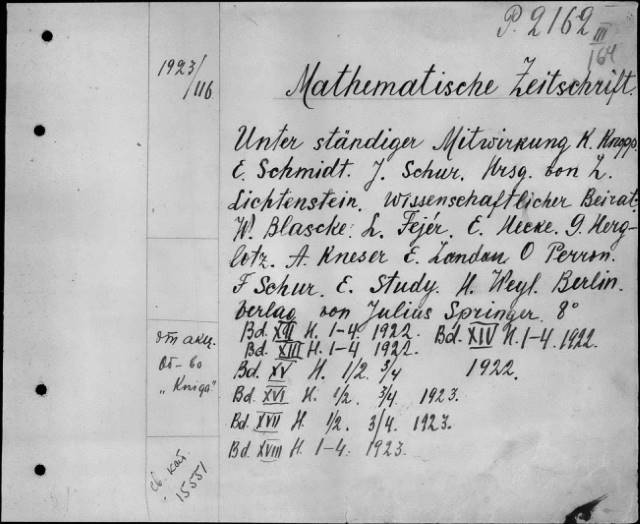 P. 2162
III
164
1923/116
Mathematische Zeitschrift.
Unter ständiger Mitwirkung K. Knopp.
E. Schmidt. J. Schur. Hrsg. von L.
Lichtenstein. Wissenschaftlicher Beirat
W. Blascke. L. Fejér. E. Hecke. G. Herg-
lotz. A. Kneser E. Landau O Perron.
F Schur. E. Study. H. Weyl. Berlin.
Verlag von Julius Springer 8°
Bd. XII H. 1-4. 1922. Bd. XIV H. 1-4. 1922.
Bd. XIII H. 1-4 1922.
Bd. XV H. 1/2 3/4 1922.
Bd. XVI H. 1/2. 3/4. 1923.
Bd. XVII H. 1/2. 3/4. 1923.
Bd. XVIII H. 1-4. 1923.
от акц.
Об-во
„Kniga"
св. кат
15551